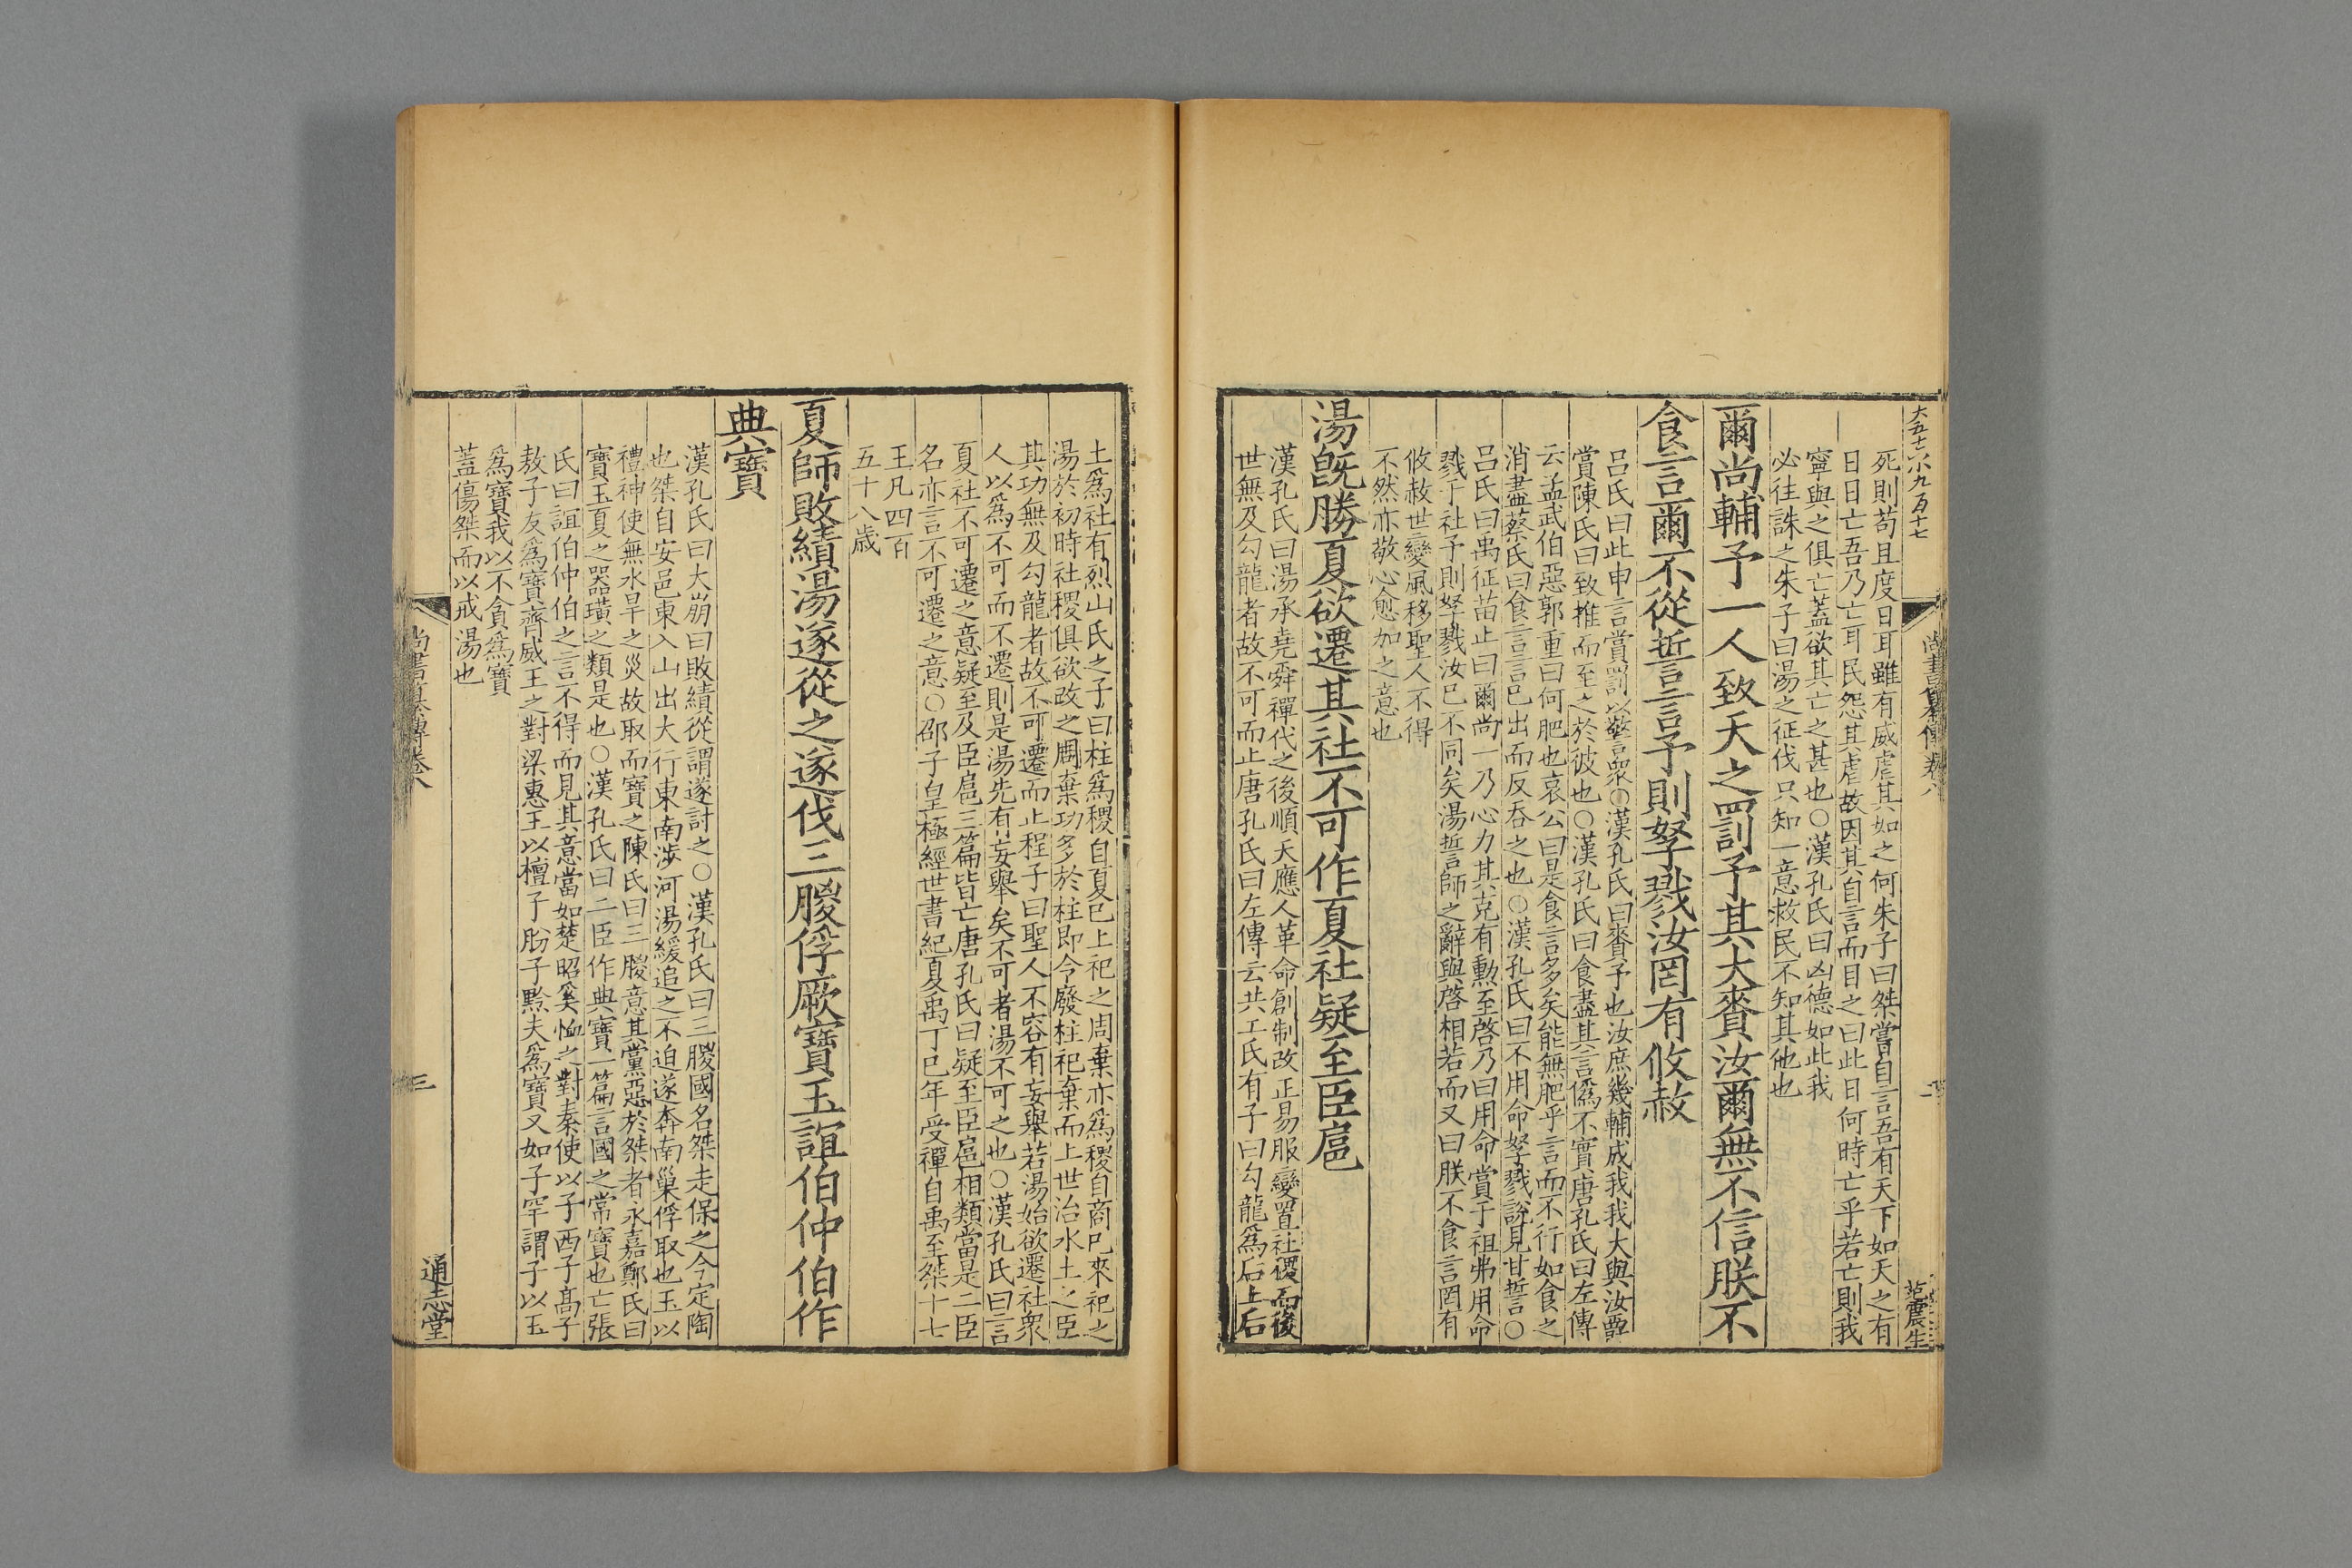 大五十六小九百十七
尚書纂傳卷八
二
范震生
死則苟且度日耳雖有威虐其如之何朱子曰桀嘗自言吾有天下如天之有
日日亡吾乃亡耳民怨其虐故因其自言而目之曰此日何時亡乎若亡則我
寧與之俱亡蓋欲其亡之甚也○漢孔氏曰凶德如此我
必往誅之朱子曰湯之征伐只知一意救民不知其他也
爾尚輔予一人致天之罰予其大賚汝爾無不信朕不
食言爾不從誓言予則孥戮汝罔有攸赦
呂氏曰此申言賞罰以警衆○漢孔氏曰賚予也汝庶幾輔成我我大與汝爵
賞陳氏曰致推而至之於彼也○漢孔氏曰食盡其言僞不實唐孔氏曰左傳
云孟武伯惡郭重曰何肥也哀公曰是食言多矣能無肥乎言而不行如食之
消盡蔡氏曰食言言已出而反吞之也○漢孔氏曰不用命孥戮說見甘誓○
呂氏曰禹征苗止曰爾尚一乃心力其克有勳至啓乃曰用命賞于祖弗用命
戮于社予則孥戮汝已不同矣湯誓師之辭與啓相若而又曰朕不食言罔有
攸赦世變風移聖人不得
不然亦敬心愈加之意也
湯旣勝夏欲遷其社不可作夏社疑至臣扈
漢孔氏曰湯承堯舜禪代之後順天應人革命創制改正易服變置社稷而後
世無及勾龍者故不可而止唐孔氏曰左傳云共工氏有子曰勾龍爲后土后
土爲社有烈山氏之子曰柱爲稷自夏已上祀之周棄亦爲稷自商已來祀之
湯於初時社稷俱欲改之周棄功多於柱即令廢柱祀棄而上世治水土之臣
其功無及勾龍者故不可遷而止程子曰聖人不容有妄舉若湯始欲遷社衆
人以爲不可而不遷則是湯先有妄舉矣不可者湯不可之也○漢孔氏曰言
夏社不可遷之意疑至及臣扈三篇皆亡唐孔氏曰疑至臣扈相類當是二臣
名亦言不可遷之意○邵子皇極經世書紀夏禹丁巳年受禪自禹至桀十七
王凡四百
五十八歲
夏師敗績湯遂從之遂伐三朡俘厥寶玉誼伯仲伯作
典寶
漢孔氏曰大崩曰敗績從謂遂討之○漢孔氏曰三朡國名桀走保之今定陶
也桀自安邑東入山出大行東南涉河湯緩追之不迫遂奔南巢俘取也玉以
禮神使無水旱之災故取而寶之陳氏曰三朡意其黨惡於桀者永嘉鄭氏曰
寶玉夏之器璜之類是也○漢孔氏曰二臣作典寶一篇言國之常寶也亡張
氏曰誼伯仲伯之言不得而見其意當如楚昭奚恤之對秦使以子西子髙子
敖子友爲寶齊威王之對梁惠王以檀子肦子黔夫爲寶又如子罕謂子以玉
爲寶我以不貪爲寶
蓋傷桀而以戒湯也
尚書纂傳卷八
三
通志堂